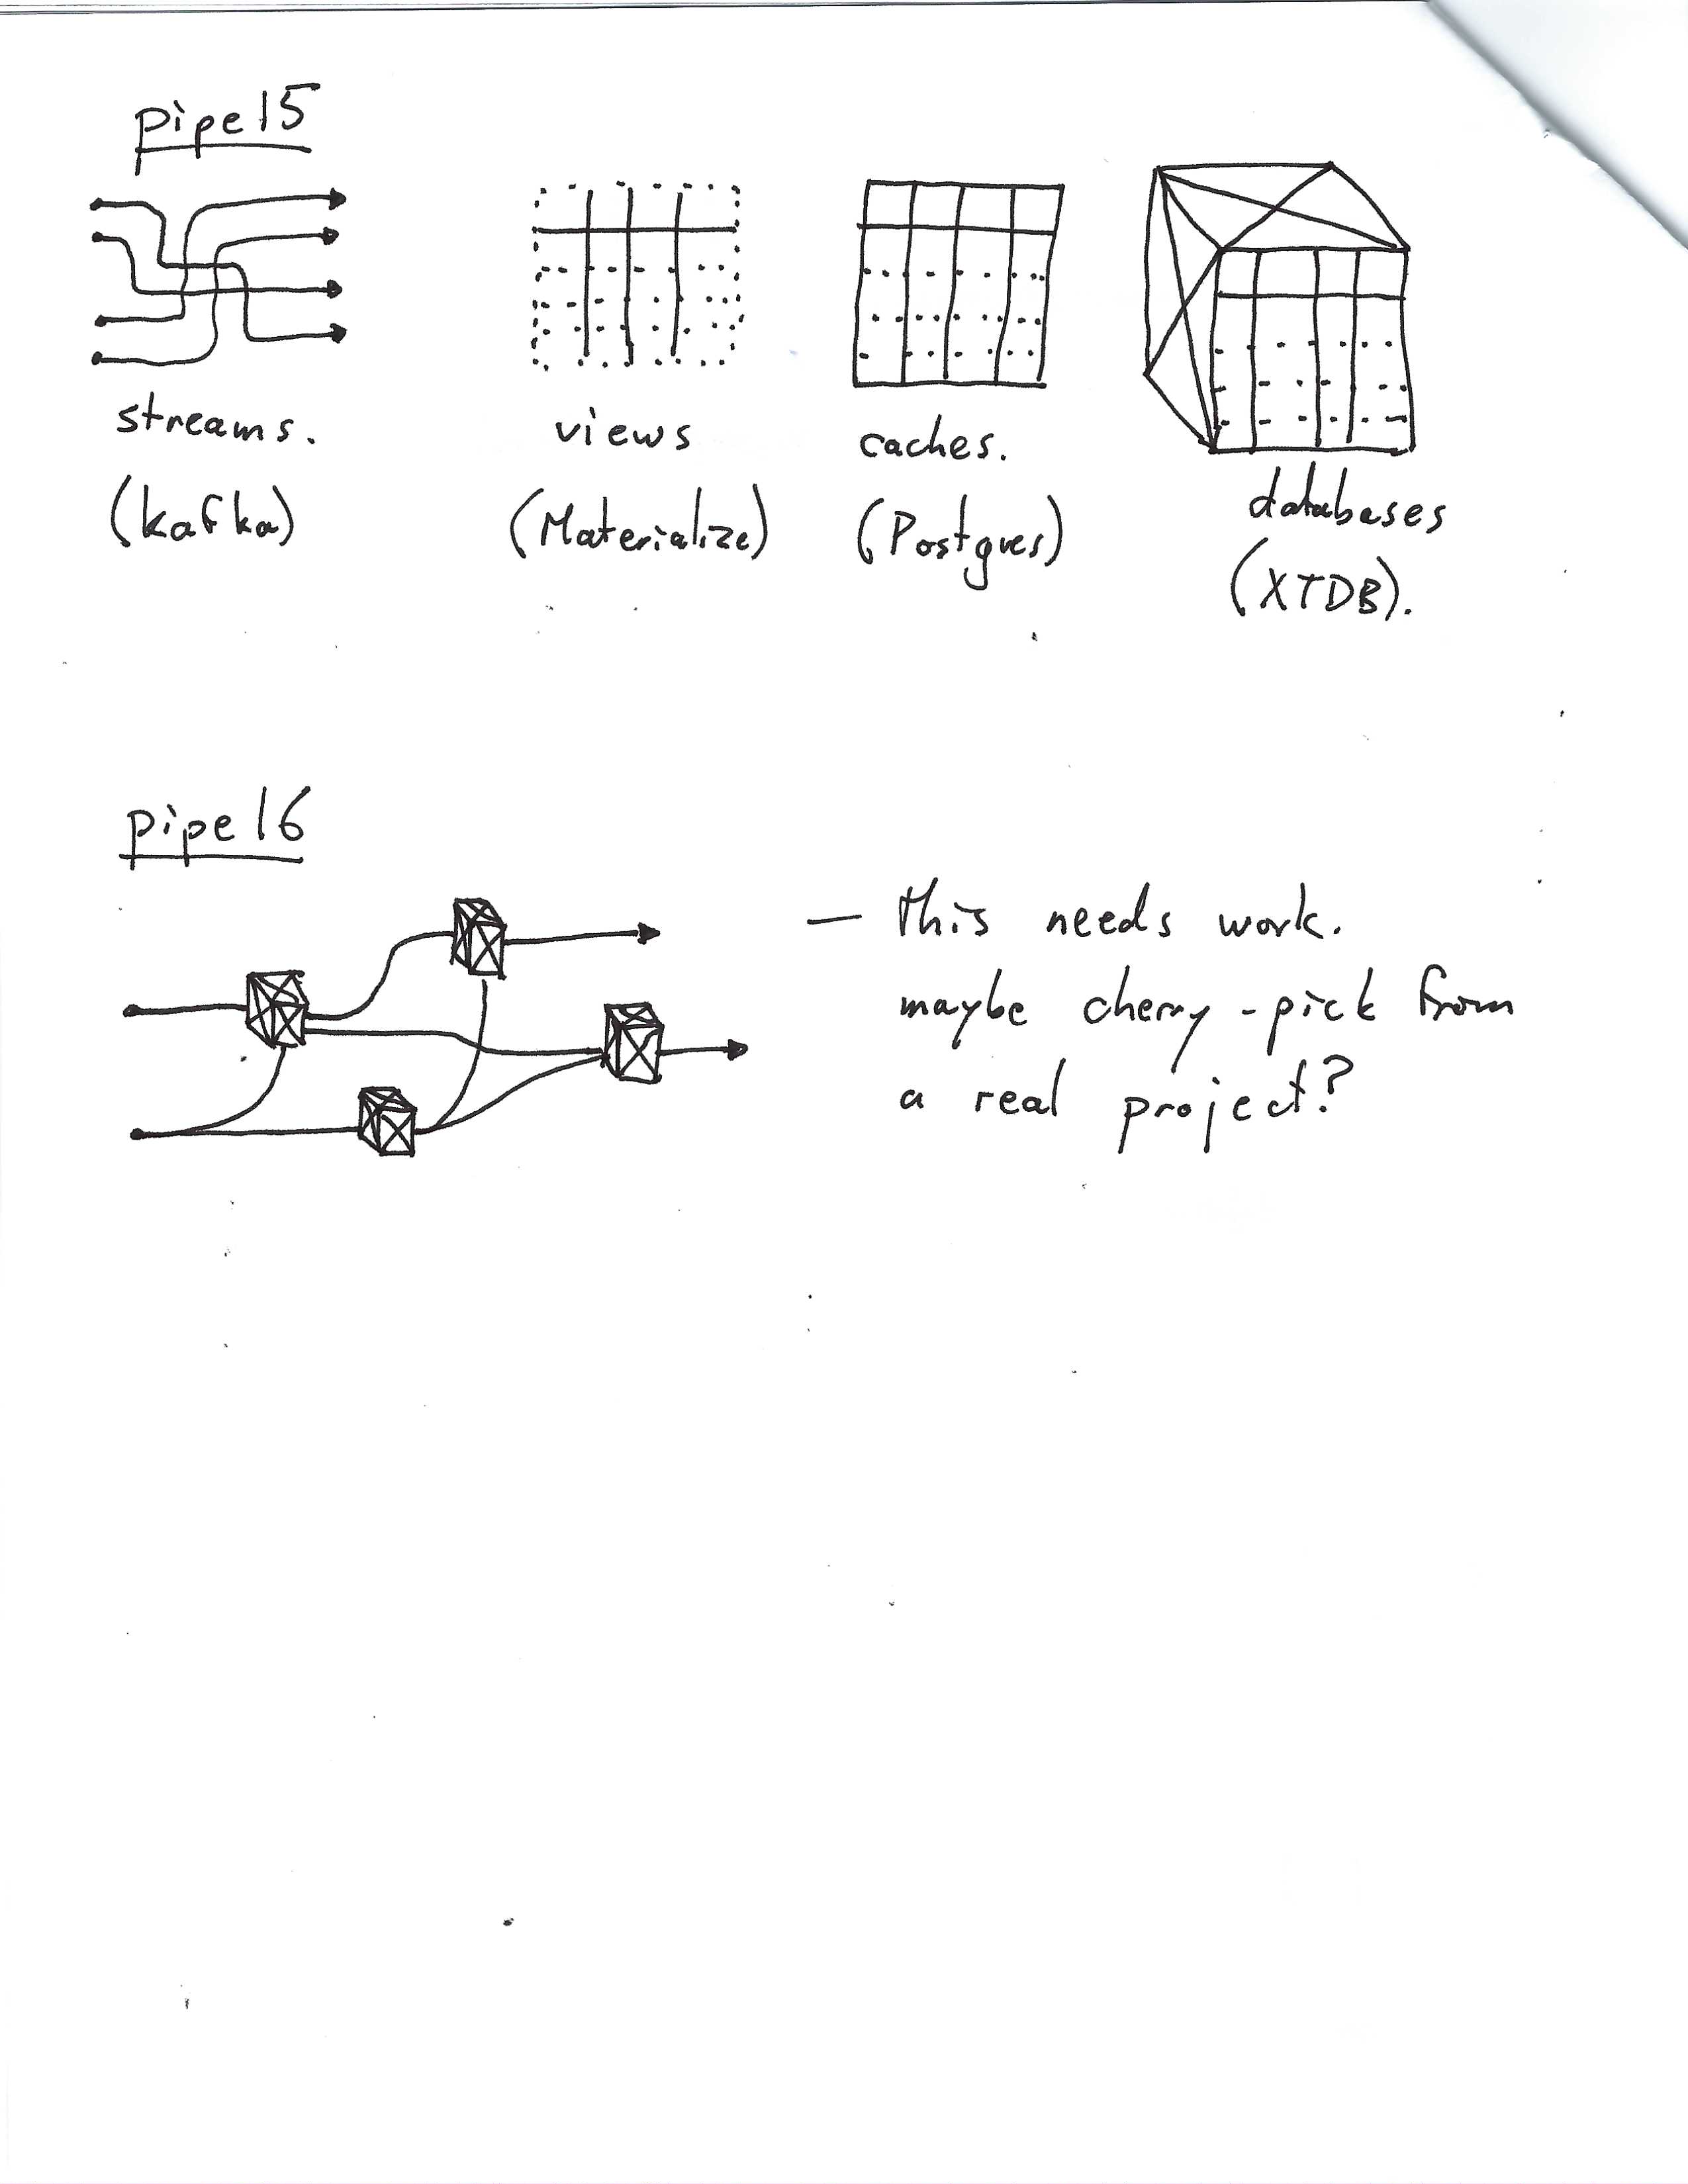 pipe15
streams.
(kafka)
views
(Materialize)
caches.
(Postgres)
databases
(XTDB).
pipe16
— this needs work.
maybe cherry-pick from
a real project?